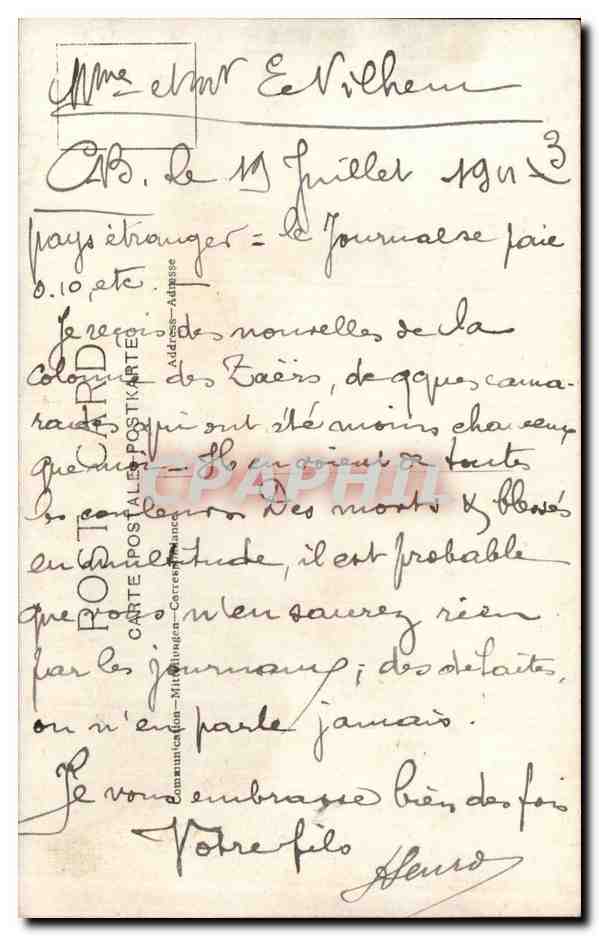 Mme et Mr E Vilhem
CB. le 19 Juillet 191 3
pays étranger = le Journal se paie
0.10, etc. —
Je reçois des nouvelles de la
colonne des Zaërs, de qques cama-
rades qui ont été moins chanceux
que moi — Ils en voient de toutes
les couleurs Des morts & blessés
en multitude, il est probable
que vous n'en saurez rien
par les journaux; des défaites,
on n'en parle jamais.
Je vous embrasse bien des fois
Votre fils
Henri
POST CARD
CARTE POSTALE-POSTKARTE
Communication—Mitteilungen—Correspondance
Address—Adresse
CPAPHIL